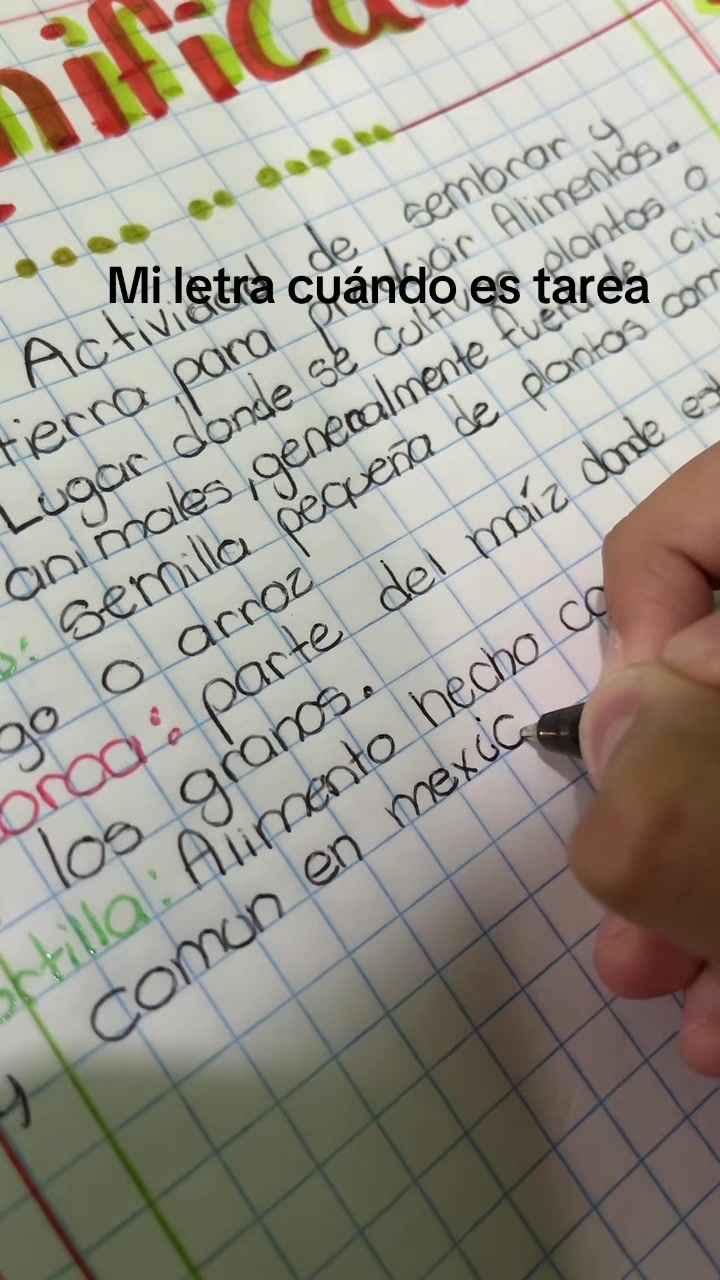 nifica
Actividad de sembrar y
Mi letra cuándo es tarea
tierra para producir Alimentos.
Lugar donde se cultivan plantas o
animales, generalmente fuera de ciu
semilla pequeña de plantas com
go o arroz
orca: parte del maíz donde est
los granos.
ortilla: Alimento hecho co
y comun en mexic